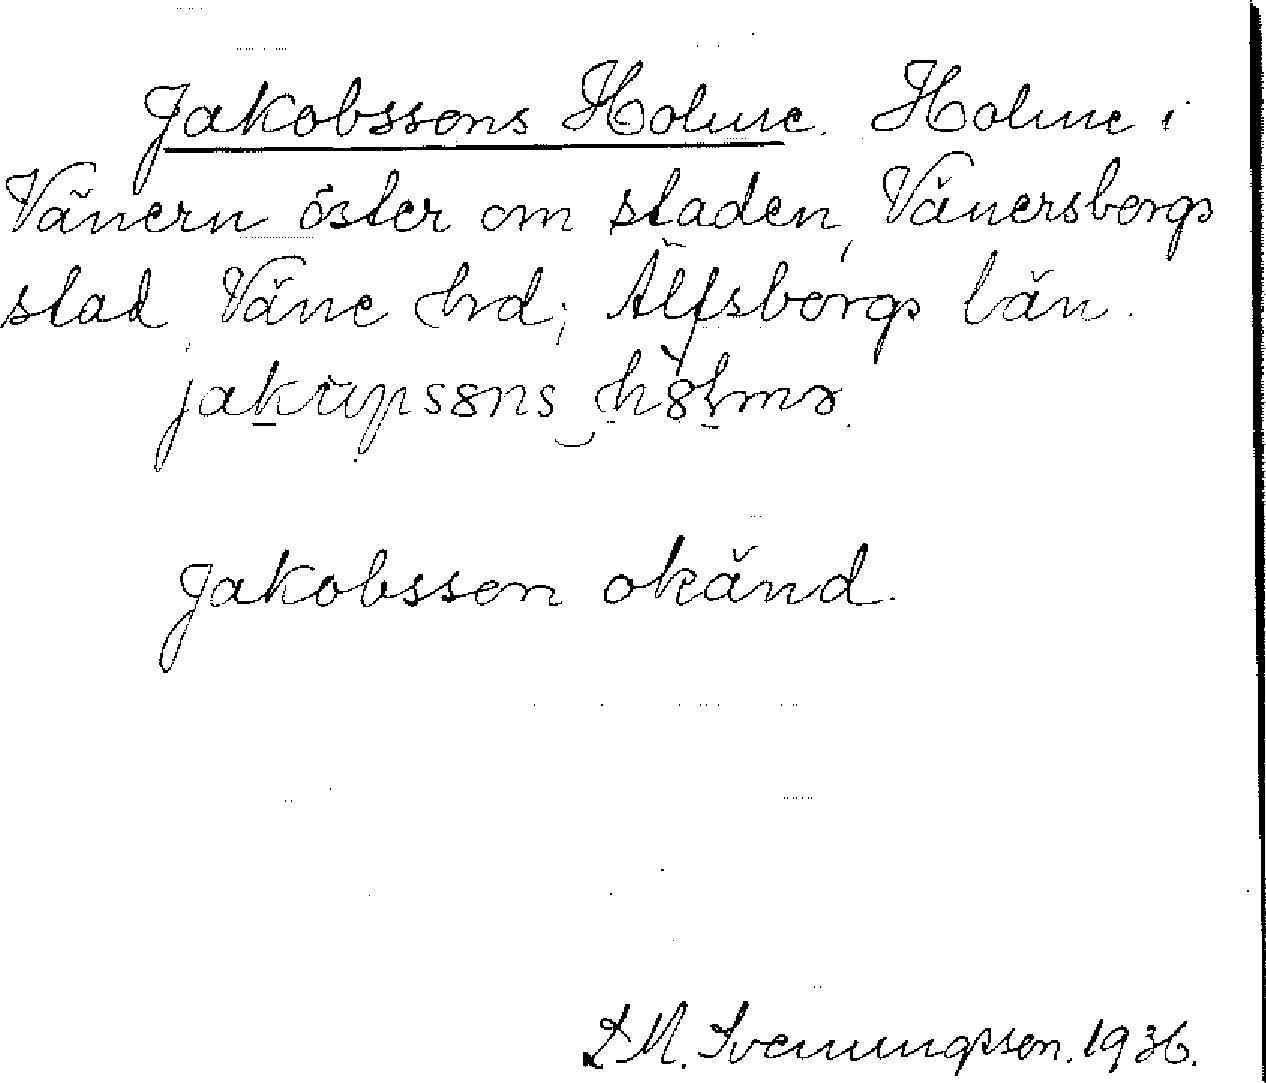 Jakobssons Holme. Holme i
Vänern öster om staden, Vänersborgs
stad, Väne hrd; Älfsborgs län.
jakɯpssns hölmə.
Jakobsson okänd.
D. M. Svenungsson. 1936.